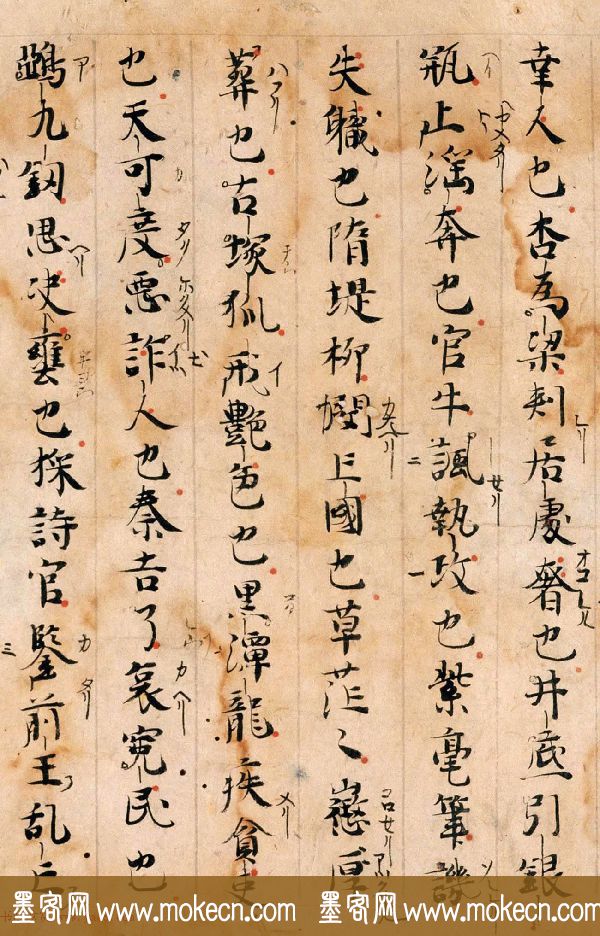 幸人也杏為梁刾居處奢也井底引銀
瓶止淫奔也官牛諷執政也紫毫筆譏
失職也隋堤柳憫亡國也草茫〻懲厚
葬也古塚狐戒艷色也黒潭龍疾貪吏
也天可度惡詐人也秦吉了哀寃民也
鵶九釼思决壅也採詩官鑒前王乱亡
墨客网 www.mokecn.com 墨客网 www.mokecn.com